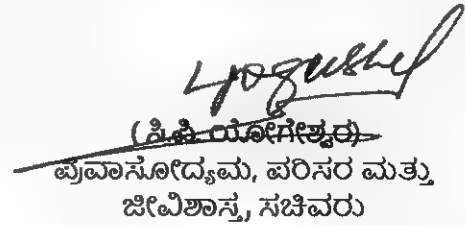 (ಸಿ.ಪಿ. ಯೋಗೇಶ್ವರ)
ಪ್ರವಾಸೋದ್ಯಮ, ಪರಿಸರ ಮತ್ತು
ಜೀವಿಶಾಸ್ತ್ರ, ಸಚಿವರು